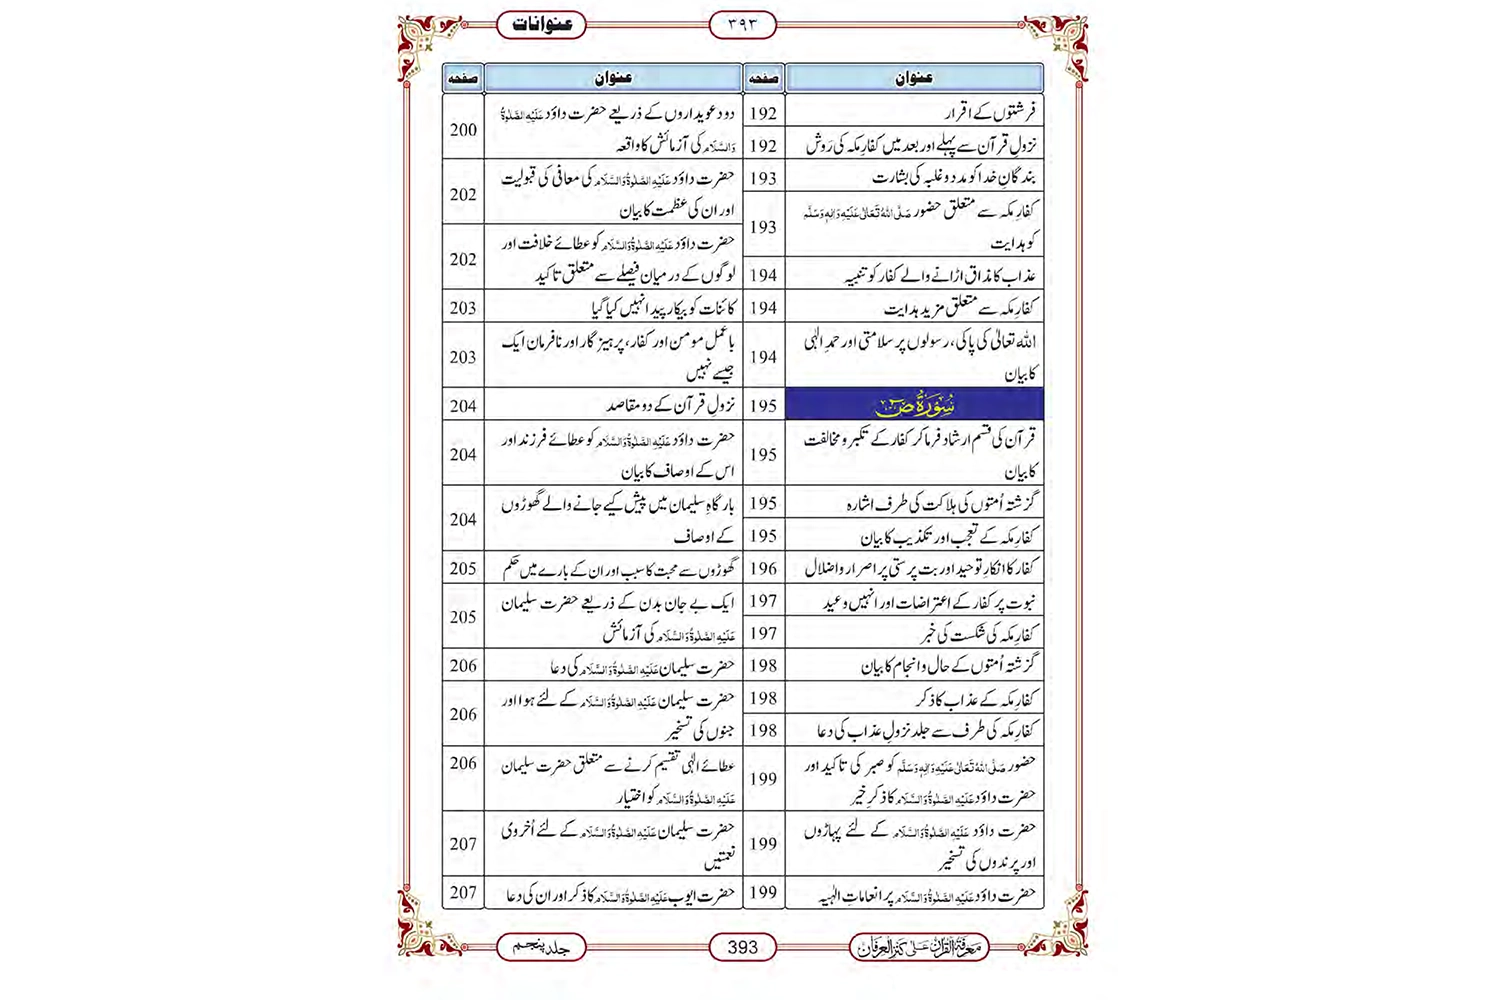 عنوانات
۳۹۳
عنوان صفحہ عنوان صفحہ
فرشتوں کے اقرار 192
نزولِ قرآن سے پہلے اور بعد میں کفارِ مکہ کی رَوِش 192
بندگانِ خدا کو مدد و غلبہ کی بشارت 193
کفارِ مکہ سے متعلق حضور صَلَّی اللہُ تَعَالٰی عَلَیْہِ وَاٰلِہٖ وَسَلَّم
کو ہدایت 193
عذاب کا مذاق اڑانے والے کفار کو تنبیہ 194
کفارِ مکہ سے متعلق مزید ہدایت 194
اللہ تعالیٰ کی پاکی، رسولوں پر سلامتی اور حمدِ الٰہی
کا بیان 194
سُوْرَۃُ صٓ 195
قرآن کی قسم ارشاد فرما کر کفار کے تکبر و مخالفت
کا بیان 195
گزشتہ اُمتوں کی ہلاکت کی طرف اشارہ 195
کفارِ مکہ کے تعجب اور تکذیب کا بیان 195
کفار کا انکارِ توحید اور بت پرستی پر اصرار و اضلال 196
نبوت پر کفار کے اعتراضات اور انہیں وعید 197
کفارِ مکہ کی شکست کی خبر 197
گزشتہ اُمتوں کے حال و انجام کا بیان 198
کفارِ مکہ کے عذاب کا ذکر 198
کفارِ مکہ کی طرف سے جلد نزولِ عذاب کی دعا 198
حضور صَلَّی اللہُ تَعَالٰی عَلَیْہِ وَاٰلِہٖ وَسَلَّم کو صبر کی تاکید اور
حضرت داؤد عَلَیْہِ الصَّلٰوۃُ وَالسَّلَام کا ذکرِ خیر 199
حضرت داؤد عَلَیْہِ الصَّلٰوۃُ وَالسَّلَام کے لئے پہاڑوں
اور پرندوں کی تسخیر 199
حضرت داؤد عَلَیْہِ الصَّلٰوۃُ وَالسَّلَام پر انعاماتِ الٰہیہ 199
دو دعویداروں کے ذریعے حضرت داؤد عَلَیْہِ الصَّلٰوۃُ
وَالسَّلَام کی آزمائش کا واقعہ 200
حضرت داؤد عَلَیْہِ الصَّلٰوۃُ وَالسَّلَام کی معافی کی قبولیت
اور ان کی عظمت کا بیان 202
حضرت داؤد عَلَیْہِ الصَّلٰوۃُ وَالسَّلَام کو عطائے خلافت اور
لوگوں کے درمیان فیصلے سے متعلق تاکید 202
کائنات کو بیکار پیدا نہیں کیا گیا 203
با عمل مومن اور کفار، پرہیز گار اور نافرمان ایک
جیسے نہیں 203
نزولِ قرآن کے دو مقاصد 204
حضرت داؤد عَلَیْہِ الصَّلٰوۃُ وَالسَّلَام کو عطائے فرزند اور
اس کے اوصاف کا بیان 204
بارگاہِ سلیمان میں پیش کیے جانے والے گھوڑوں
کے اوصاف 204
گھوڑوں سے محبت کا سبب اور ان کے بارے میں حکم 205
ایک بے جان بدن کے ذریعے حضرت سلیمان
عَلَیْہِ الصَّلٰوۃُ وَالسَّلَام کی آزمائش 205
حضرت سلیمان عَلَیْہِ الصَّلٰوۃُ وَالسَّلَام کی دعا 206
حضرت سلیمان عَلَیْہِ الصَّلٰوۃُ وَالسَّلَام کے لئے ہوا اور
جنوں کی تسخیر 206
عطائے الٰہی تقسیم کرنے سے متعلق حضرت سلیمان
عَلَیْہِ الصَّلٰوۃُ وَالسَّلَام کو اختیار 206
حضرت سلیمان عَلَیْہِ الصَّلٰوۃُ وَالسَّلَام کے لئے اُخروی
نعمتیں 207
حضرت ایوب عَلَیْہِ الصَّلٰوۃُ وَالسَّلَام کا ذکر اور ان کی دعا 207
مَعرِفَۃُ القُرآن عَلٰی کَنزُ العِرفَان
393
جلد پنجم